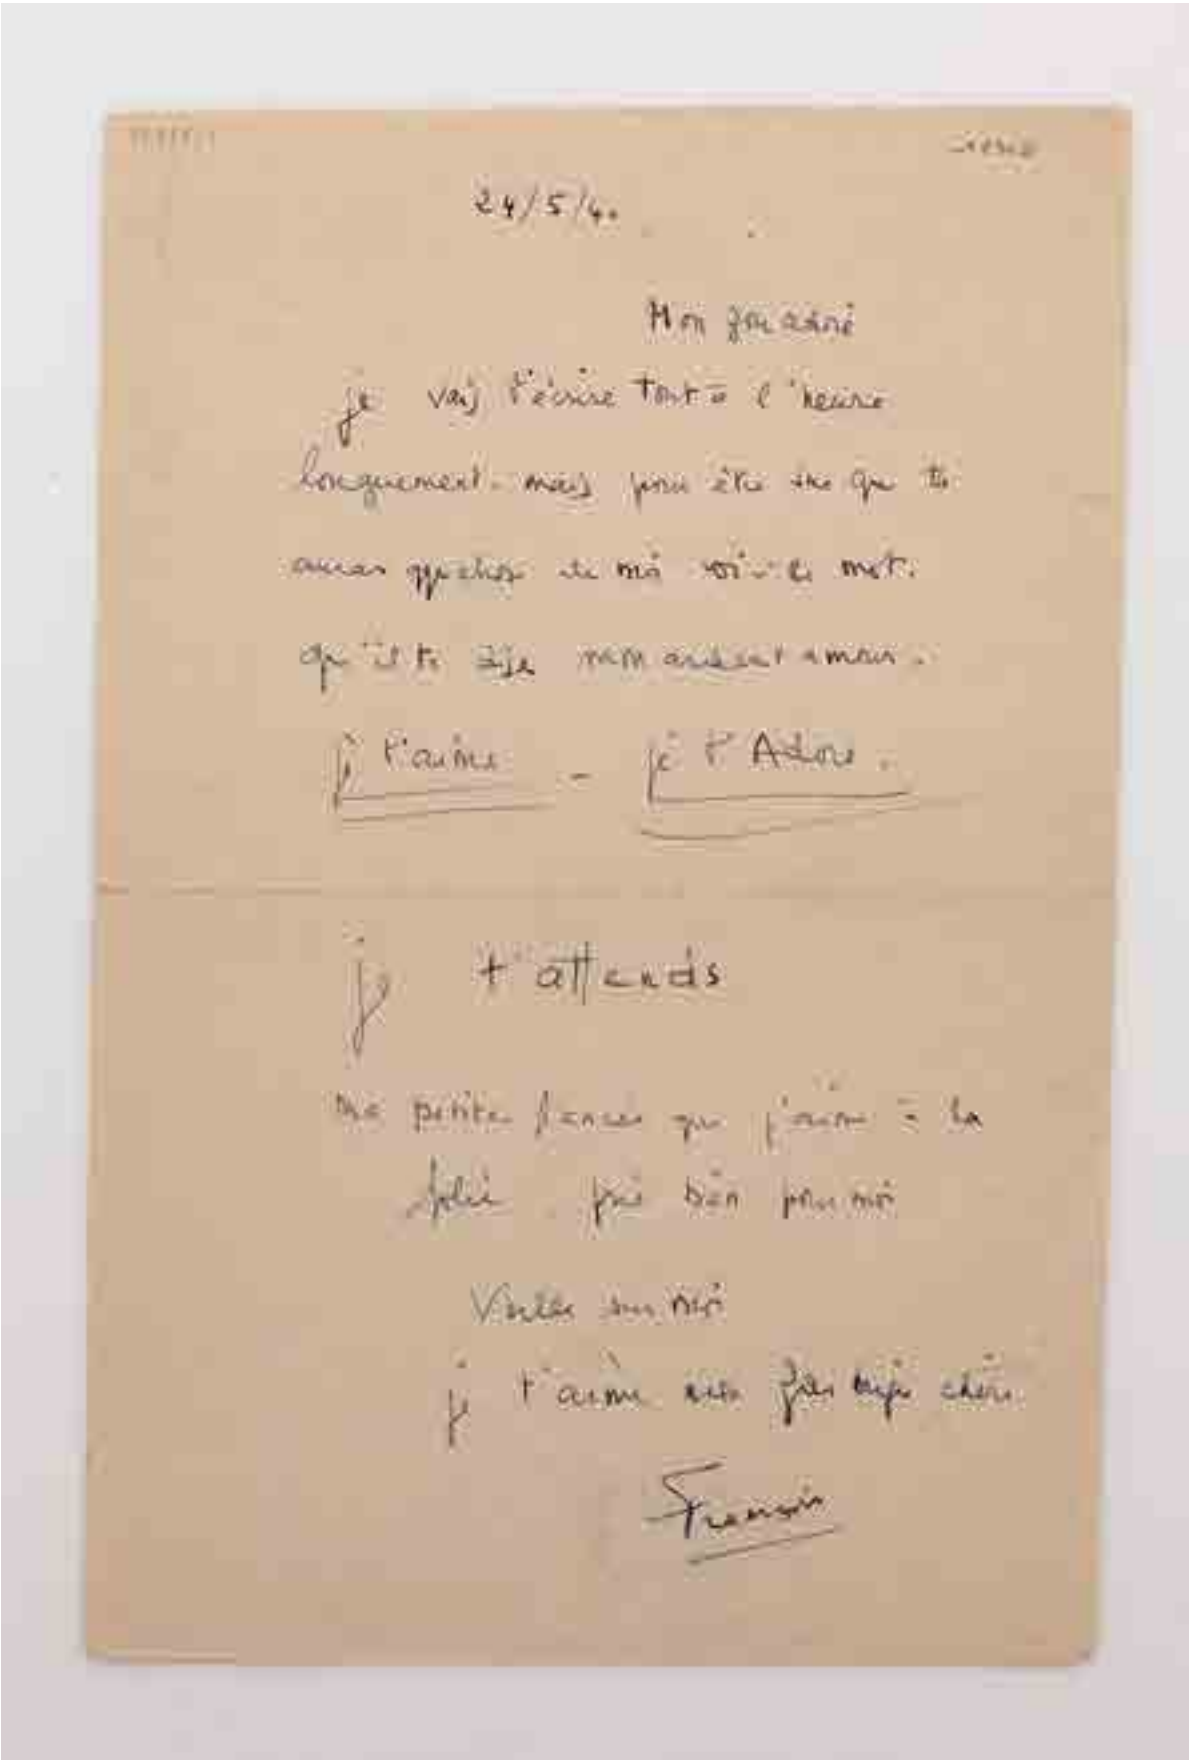 24/5/40
Mon Zou adoré
je vais t'écrire tout à l'heure
longuement. mais pour être sûr que tu
auras qqchose de moi voici ce mot.
qu'il te dise mon ardent amour.
je t'aime - je t'Adore.
je t'attends
Ma petite fiancée que j'aime à la
folie. prie bien pour moi
Veille sur moi
je t'aime mon Zou chéri
François